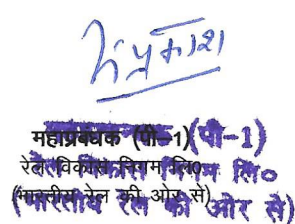 महाप्रबंधक (पी-1)
रेल विकास निगम लि०
(भारतीय रेल की ओर से)